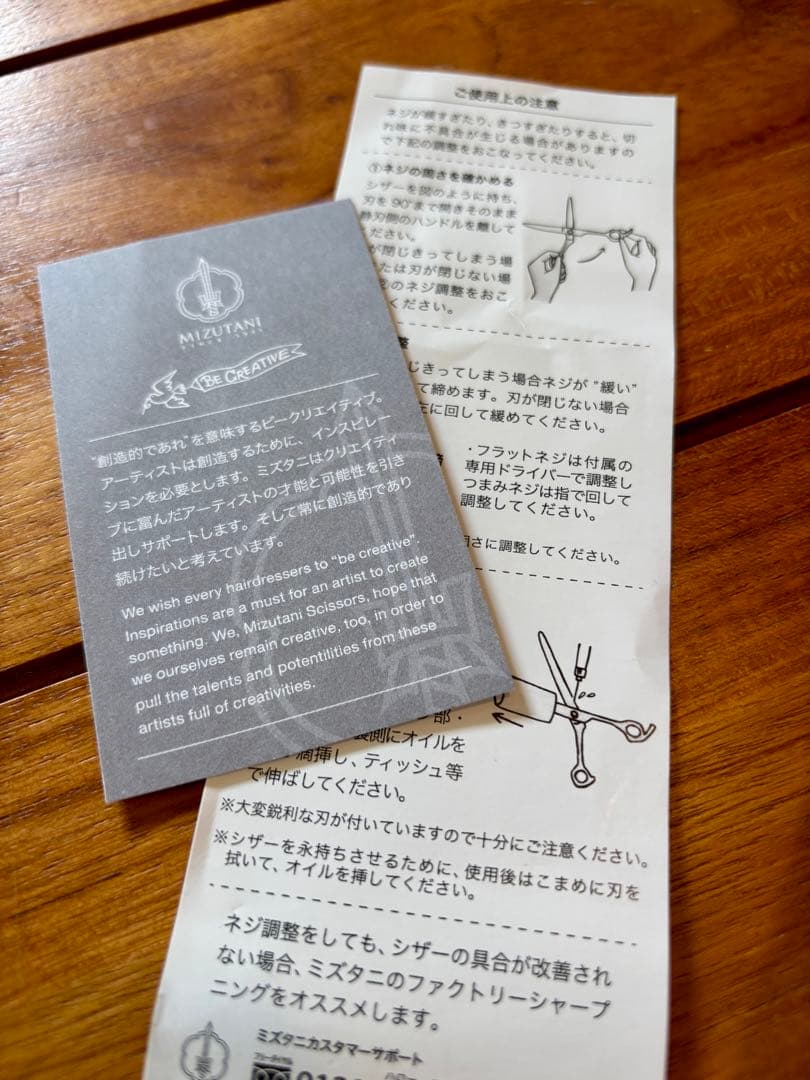 MIZUTANI
SINCE 1921
BE CREATIVE
"創造的であれ"を意味するビークリエイティブ。
アーティストは創造するために、インスピレー
ションを必要とします。ミズタニはクリエイティ
ブに富んだアーティストの才能と可能性を引き
出しサポートします。そして常に創造的であり
続けたいと考えています。
We wish every hairdressers to "be creative".
Inspirations are a must for an artist to create
something. We, Mizutani Scissors, hope that
we ourselves remain creative, too, in order to
pull the talents and potentilities from these
artists full of creativities.
ご使用上の注意
ネジが緩すぎたり、きつすぎたりすると、切
れ味に不具合が生じる場合がありますの
で下記の調整をおこなってください。
①ネジの固さを確かめる
シザーを図のように持ち、
刃を90°まで開きそのまま
静刃側のハンドルを離して
ください。
が閉じきってしまう場
たは刃が閉じない場
②のネジ調整をおこ
ください。
整
じきってしまう場合ネジが"緩い"
て締めます。刃が閉じない場合
左に回して緩めてください。
・フラットネジは付属の
専用ドライバーで調整し
つまみネジは指で回して
調整してください。
固さに調整してください。
部・
裏側にオイルを
滴挿し、ティッシュ等
で伸ばしてください。
※大変鋭利な刃が付いていますので十分にご注意ください。
※シザーを永持ちさせるために、使用後はこまめに刃を
拭いて、オイルを挿してください。
ネジ調整をしても、シザーの具合が改善され
ない場合、ミズタニのファクトリーシャープ
ニングをオススメします。
ミズタニカスタマーサポート
フリーダイヤル